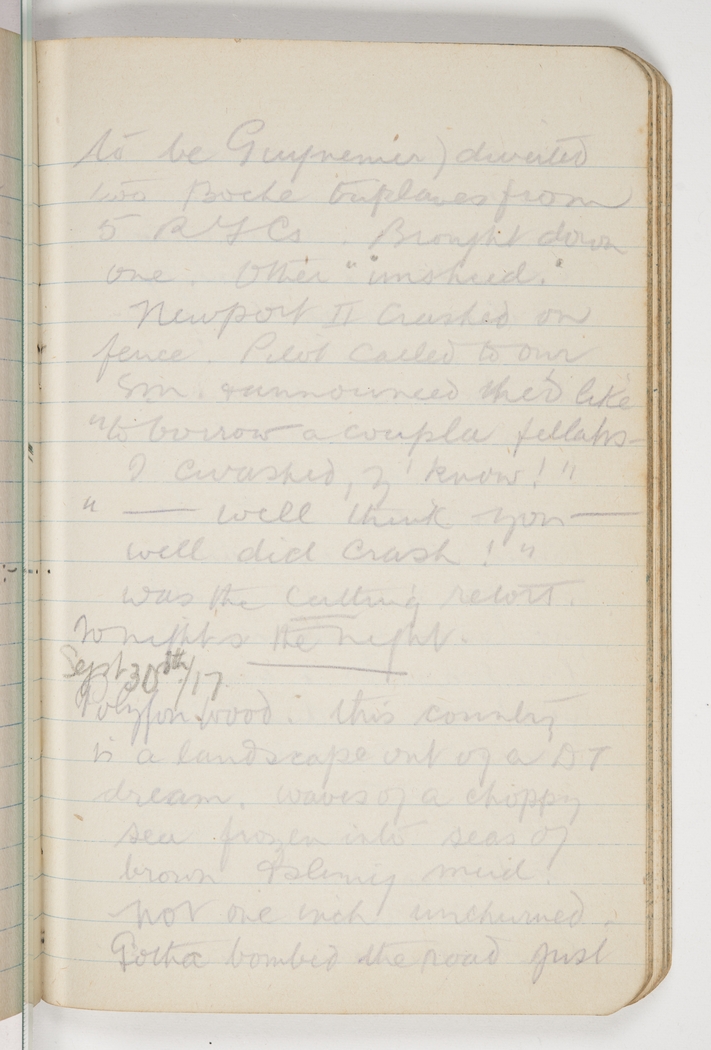 to be Guynemer) diverted
two Boche triplanes from
5 RFCs. Brought down
one. Other "unshied."
Newport II crashed on
fence. Pilot called to our
Sm. & announced he'd like
"to borrow a coupla fellahs–
I cwashed, y' know!"
" — well think you —
well did crash!"
was the cutting retort.
Tonight's the night.
Sept 30th/17
Polygon Wood: this country
is a landscape out of a DT
dream. waves of a choppy
sea frozen into seas of
brown & slimy mud.
Not one inch unchurned.
Gotha bombed the road just